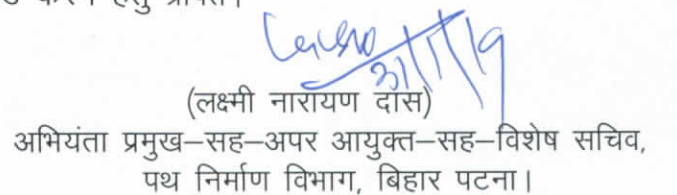 करने हेतु प्रेषित।
31/1/19
(लक्ष्मी नारायण दास)
अभियंता प्रमुख–सह–अपर आयुक्त–सह–विशेष सचिव,
पथ निर्माण विभाग, बिहार पटना।